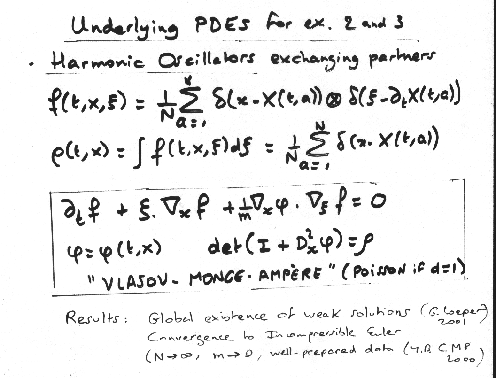 Underlying PDEs for ex. 2 and 3
. Harmonic Oscillators exchanging partners
f(t,x,ξ) = 1/N Σ_{a=1}^{N} δ(x-X(t,a)) ⊗ δ(ξ-∂_t X(t,a))
ρ(t,x) = ∫ f(t,x,ξ)dξ = 1/N Σ_{a=1}^{N} δ(x-X(t,a))
∂_t f + ξ.∇_x f + 1/m ∇_x φ . ∇_ξ f = 0
φ=φ(t,x) det(I + D_x^2 φ) = ρ
"VLASOV-MONGE-AMPÈRE" (POISSON if d=1)
Results: Global existence of weak solutions (G. Loeper) 2001
Convergence to Incompressible Euler
(N→∞, m→0, well-prepared data (Y.B CMP 2000)